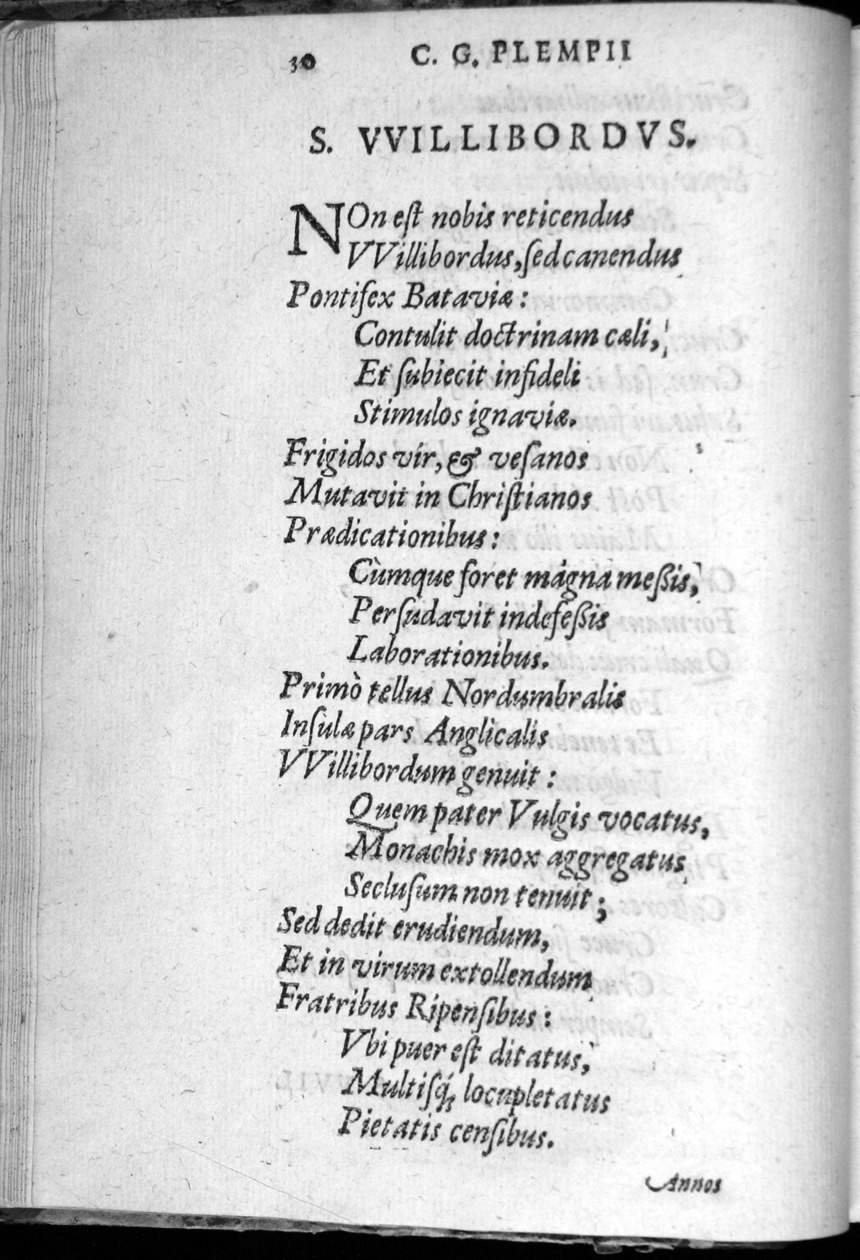 30 C. G. PLEMPII
S. VVILLIBORDVS.
NOn eſt nobis reticendus
VVillibordus, ſed canendus
Pontifex Bataviæ:
Contulit doctrinam cæli,
Et ſubiecit infideli
Stimulos ignaviæ.
Frigidos vir, & veſanos
Mutavit in Chriſtianos
Prædicationibus:
Cùmque foret magna meßis,
Perſudavit indefeßis
Laborationibus.
Primò tellus Nordumbralis
Inſulæ pars Anglicalis
VVillibordum genuit:
Quem pater Vulgis vocatus,
Monachis mox aggregatus
Secluſum non tenuit;
Sed dedit erudiendum,
Et in virum extollendum
Fratribus Ripenſibus:
Vbi puer eſt ditatus,
Multiſq́ꝫ locupletatus
Pietatis cenſibus.
Annos